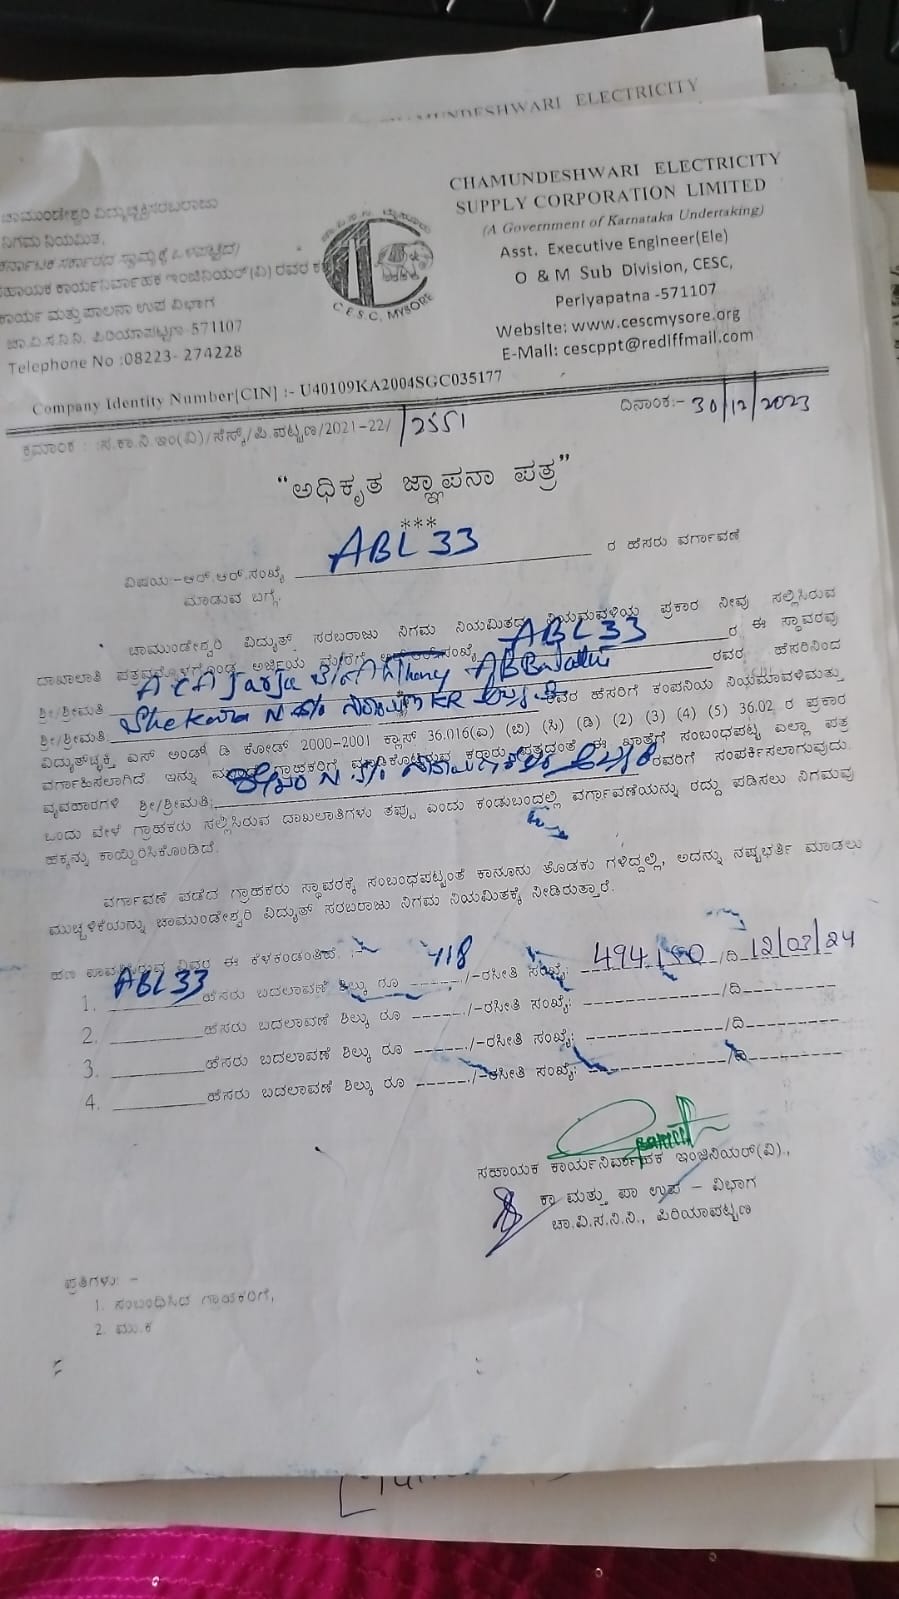 CHAMUNDESHWARI ELECTRICITY
ಚಾಮುಂಡೇಶ್ವರಿ ವಿದ್ಯುಚ್ಛಕ್ತಿಸರಬರಾಜು
ನಿಗಮ ನಿಯಮಿತ,
ಸಹಾಯಕ ಕಾರ್ಯನಿರ್ವಾಹಕ ಇಂಜಿನಿಯರ್(ವಿ) ರವರ
ಕಾರ್ಯ ಮತ್ತು ಪಾಲನಾ ಉಪ ವಿಭಾಗ
ಚಾ.ವಿ.ಸ.ನಿ.ನಿ. ಪಿರಿಯಾಪಟ್ಟಣ-571107
Telephone No :08223- 274228
C.E.S.C, MYSORE
CHAMUNDESHWARI ELECTRICITY
SUPPLY CORPORATION LIMITED
(A Government of Karnataka Undertaking)
Asst. Executive Engineer(Ele)
O & M Sub Division, CESC,
Periyapatna -571107
Website: www.cescmysore.org
E-Mail: cescppt@rediffmail.com
Company Identity Number[CIN] :- U40109KA2004SGC035177
ಕ್ರಮಾಂಕ : :ಸ.ಕಾ.ನಿ.ಇಂ(ವಿ)/ಸೆಸ್ಕ್/ಪಿ.ಪಟ್ಟಣ/2021-22/ /2551 ದಿನಾಂಕ:- 30/12/2023
"ಅಧಿಕೃತ ಜ್ಞಾಪನಾ ಪತ್ರ"
***
ವಿಷಯ:-ಆರ್.ಆರ್.ಸಂಖ್ಯೆ ABL 33 ರ ಹೆಸರು ವರ್ಗಾವಣೆ
ಮಾಡುವ ಬಗ್ಗೆ.
ಚಾಮುಂಡೇಶ್ವರಿ ವಿದ್ಯುತ್ ಸರಬರಾಜು ನಿಗಮ ನಿಯಮಿತದ ನಿಯಮವಳಿಯ ಪ್ರಕಾರ ನೀವು ಸಲ್ಲಿಸಿರುವ
ದಾಖಲಾತಿ ಅರ್ಜಿಯ ABL 33 ರ ಈ ಸ್ಥಾವರವು
ಶ್ರೀ/ಶ್ರೀಮತಿ ರವರ ಹೆಸರಿನಿಂದ
ಶ್ರೀ/ಶ್ರೀಮತಿ Shekara N KR ರವರ ಹೆಸರಿಗೆ ಕಂಪನಿಯ ನಿಯಮಾವಳಿಮತ್ತು
ವಿದ್ಯುಚ್ಛಕ್ತಿ ಎಸ್ ಅಂಡ್ ಡಿ ಕೋಡ್ 2000-2001 ಕ್ಲಾಸ್ 36.016(ಎ) (ಬಿ) (ಸಿ) (ಡಿ) (2) (3) (4) (5) 36.02 ರ ಪ್ರಕಾರ
ವರ್ಗಾಹಿಸಲಾಗಿದೆ. ಇನ್ನು ಗ್ರಾಹಕರಿಗೆ ಕರಾರು ಪತ್ರದಂತೆ ಈ ಖಾತೆಗೆ ಸಂಬಂಧಪಟ್ಟ ಎಲ್ಲಾ ಪತ್ರ
ವ್ಯವಹಾರಗಳಿ ಶ್ರೀ/ಶ್ರೀಮತಿ: ರವರಿಗೆ ಸಂಪರ್ಕಿಸಲಾಗುವುದು.
ಒಂದು ವೇಳೆ ಗ್ರಾಹಕರು ಸಲ್ಲಿಸಿರುವ ದಾಖಲಾತಿಗಳು ತಪ್ಪು ಎಂದು ಕಂಡುಬಂದಲ್ಲಿ ವರ್ಗಾವಣೆಯನ್ನು ರದ್ದು ಪಡಿಸಲು ನಿಗಮವು
ಹಕ್ಕನ್ನು ಕಾಯ್ದಿರಿಸಿಕೊಂಡಿದೆ.
ವರ್ಗಾವಣೆ ಪಡೆದ ಗ್ರಾಹಕರು ಸ್ಥಾವರಕ್ಕೆ ಸಂಬಂಧಪಟ್ಟಂತೆ ಕಾನೂನು ತೊಡಕು ಗಳಿದ್ದಲ್ಲಿ, ಅದನ್ನು ನಷ್ಟಭರ್ತಿ ಮಾಡಲು
ಮುಚ್ಚಳಿಕೆಯನ್ನು ಚಾಮುಂಡೇಶ್ವರಿ ವಿದ್ಯುತ್ ಸರಬರಾಜು ನಿಗಮ ನಿಯಮಿತಕ್ಕೆ ನೀಡಿರುತ್ತಾರೆ.
ಹಣ ವಿವರ ಈ ಕೆಳಕಂಡಂತಿದೆ.
1. ABL 33 ಹೆಸರು ಬದಲಾವಣೆ ಶಿಲ್ಕು ರೂ 118 /-ರಸೀತಿ ಸಂಖ್ಯೆ: /ದಿ 12/03/24
2. ಹೆಸರು ಬದಲಾವಣೆ ಶಿಲ್ಕು ರೂ -----./-ರಸೀತಿ ಸಂಖ್ಯೆ: /ದಿ
3. ಹೆಸರು ಬದಲಾವಣೆ ಶಿಲ್ಕು ರೂ -----./-ರಸೀತಿ ಸಂಖ್ಯೆ: /ದಿ
4. ಹೆಸರು ಬದಲಾವಣೆ ಶಿಲ್ಕು ರೂ -----./-ರಸೀತಿ ಸಂಖ್ಯೆ: /ದಿ
ಸಹಾಯಕ ಕಾರ್ಯನಿರ್ವಾಹಕ ಇಂಜಿನಿಯರ್(ವಿ).,
ಕಾ ಮತ್ತು ಪಾ ಉಪ – ವಿಭಾಗ
ಚಾ.ವಿ.ಸ.ನಿ.ನಿ., ಪಿರಿಯಾಪಟ್ಟಣ
ಪ್ರತಿಗಳು: –
1. ಸಂಬಂಧಿಸಿದ ಗ್ರಾಹಕರಿಗೆ,
2. ಮು.ಕ